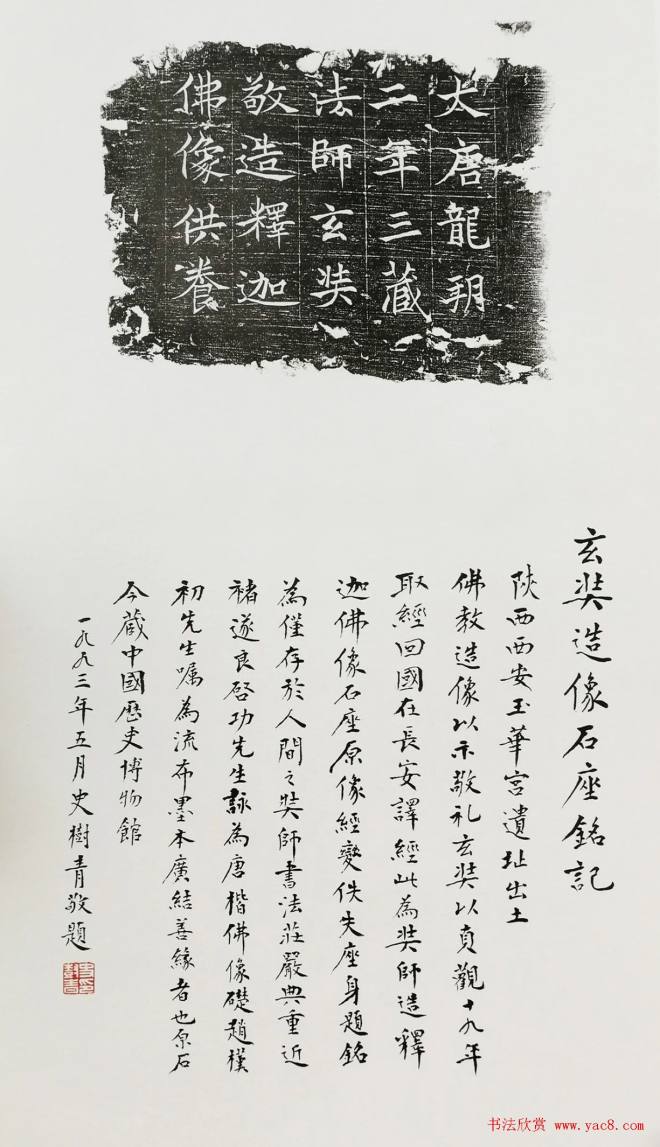 大唐龍朔
二年三藏
法師玄奘
敬造釋迦
佛像供養
玄奘造像石座銘記
陝西西安玉華宮遺址出土
佛教造像以示敬礼玄奘以貞觀十九年
取經回國在長安譯經此為奘師造釋
迦佛像石座原像經變佚失座身題銘
為僅存於人間之奘師書法莊嚴典重近
褚遂良啓功先生詠為唐楷佛像礎趙樸
初先生嘱為流布墨本廣結善緣者也原石
今藏中國歷史博物館
一九九三年五月史樹青敬題
书法欣赏 www.yac8.com